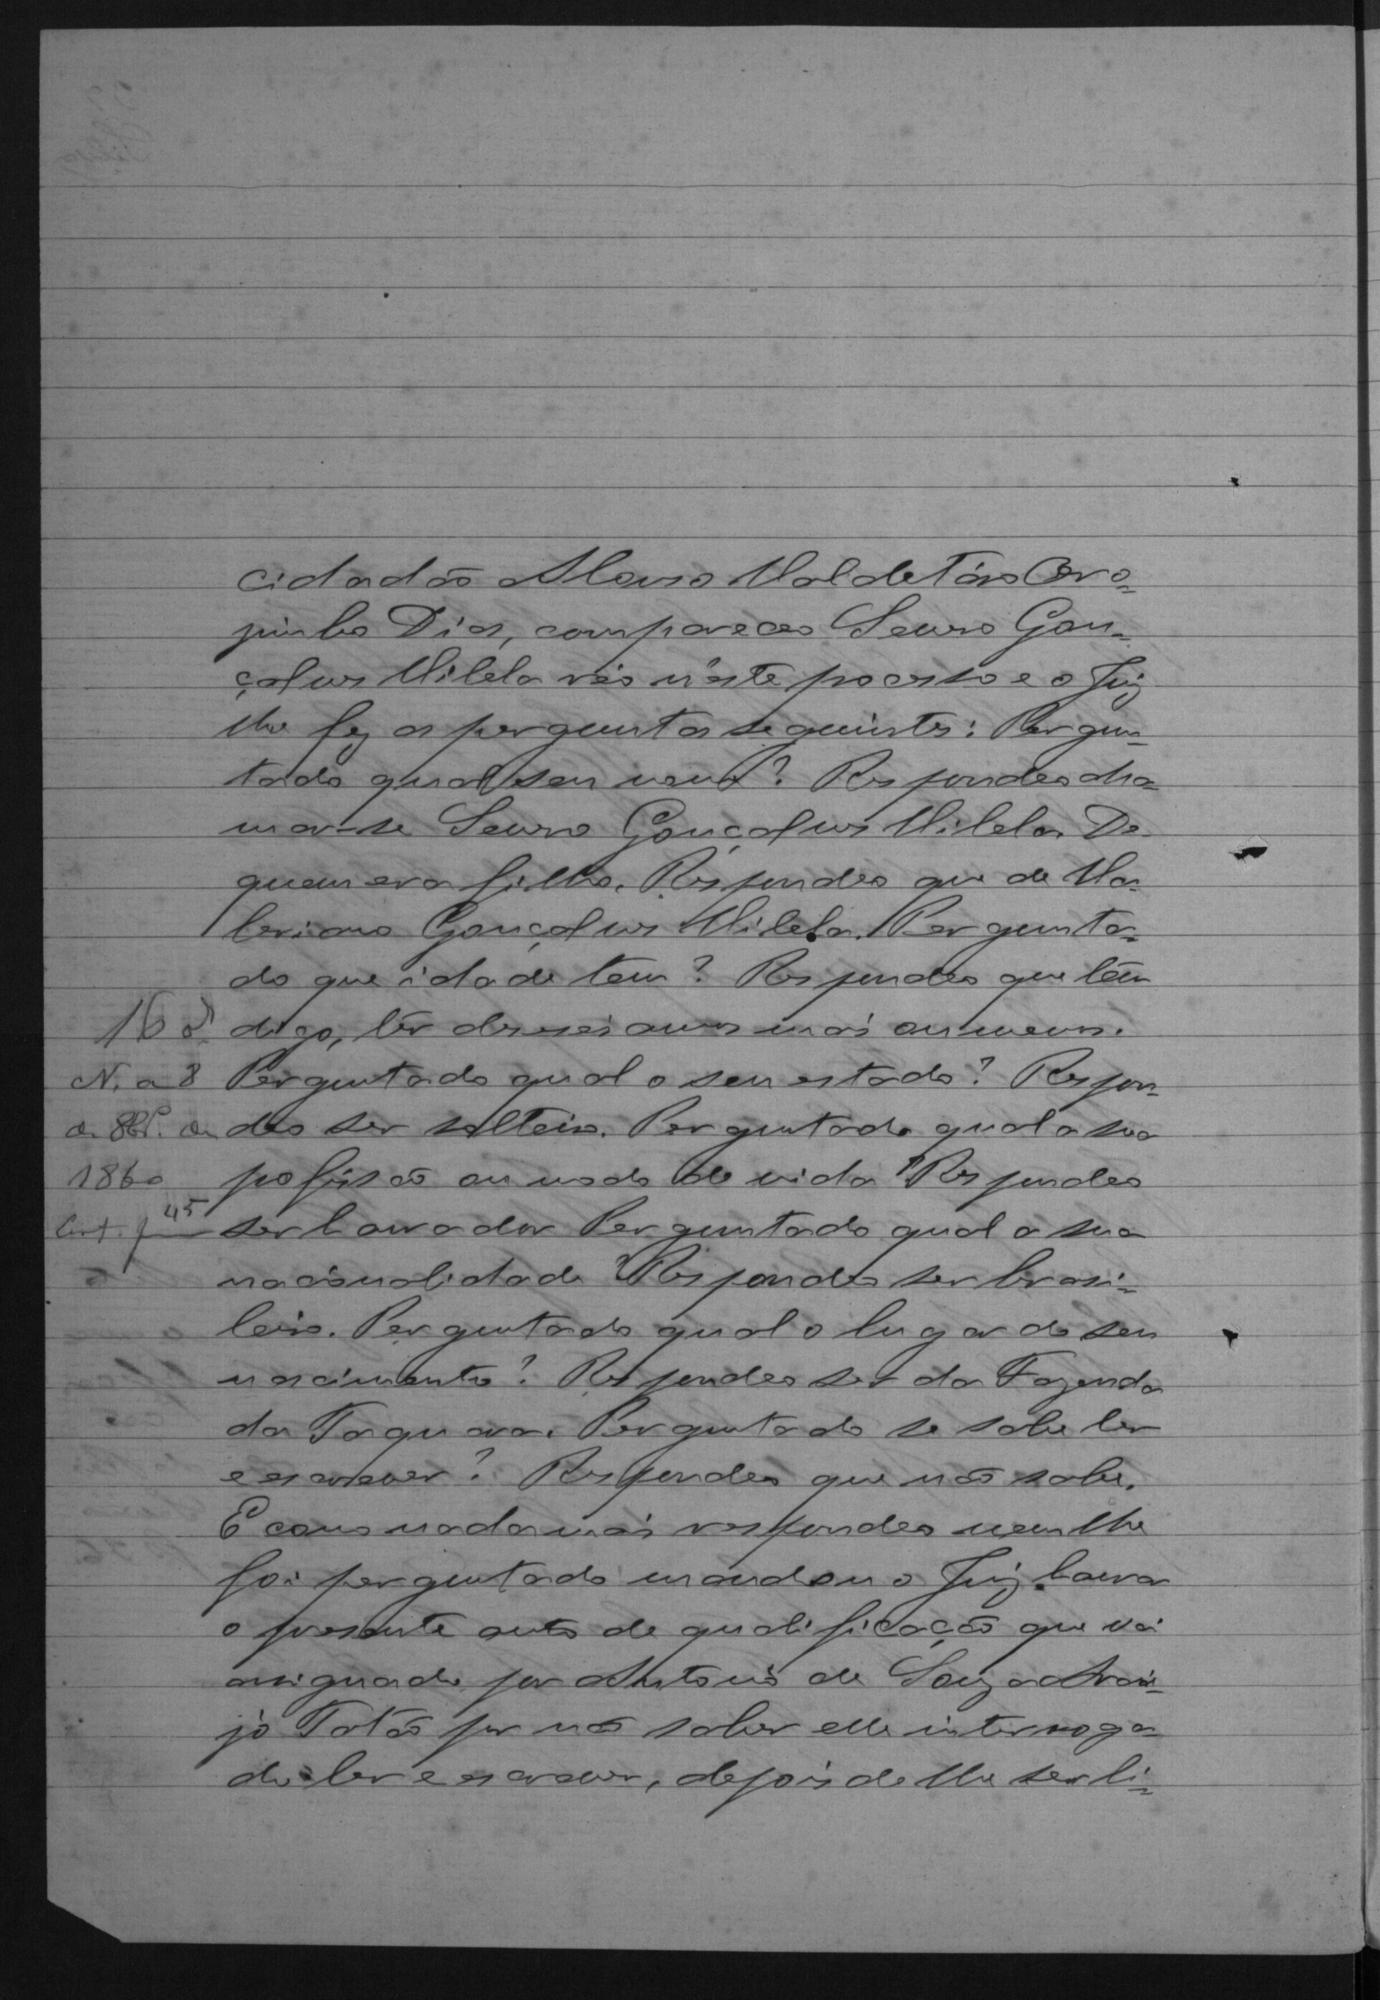 cidadão Alonso Valdetáro Cora-
jinho Dias, compareceo Lauro Gon-
çalves Vilela réo n'este processo e o Juiz
lhe fez as perguntas seguintes: Pergun-
tado qual seu nome? Respondeo cha-
mar-se Lauro Gonçalves Vilela. De
quem era filho. Respondeo que de Va-
leriano Gonçalves Vilela. Pergunta-
do que idade tem? Respondeo que tem
digo, têr deseseis annos mais ou menos.
16 a
N. a 8
de 8br. de
1860
Cert. f 45
Perguntado qual o seu estado? Respon-
deo ser solteiro. Perguntado qual a sua
profissão ou modo de vida? Respondeo
ser lavrador Perguntado qual a sua
nacionalidade? Respondeo ser brasi-
leiro. Perguntado qual o lugar do seu
nascimento? Respondeo ser da Fazenda
da Taquara. Perguntado se sabe ler
e escrever? Respondeo que não sabe.
E como nada mais respondeo nem lhe
foi perguntado mandou o Juiz lavrar
o presente auto de qualificação que vai
assignado por Antonio de Souza Arau-
jo Tatão por não saber elle interroga-
do ler e escrever, depois de lhe ser li-